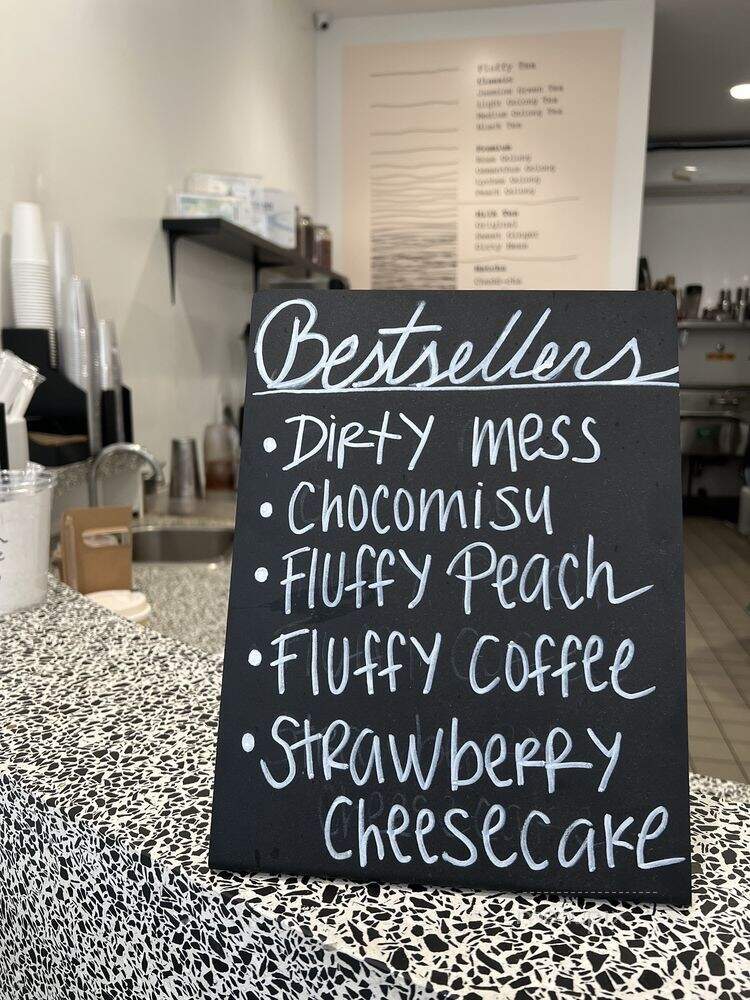 Fluffy Tea
Classic
Jasmine Green Tea
Light Oolong Tea
Medium Oolong Tea
Black Tea
Premium
Rose Oolong
Osmanthus Oolong
Lychee Oolong
Peach Oolong
Milk Tea
Original
Sweet Ginger
Dirty Mess
Matcha
Bestsellers
• Dirty mess
• Chocomisu
• Fluffy Peach
• Fluffy Coffee
• Strawberry
Cheesecake